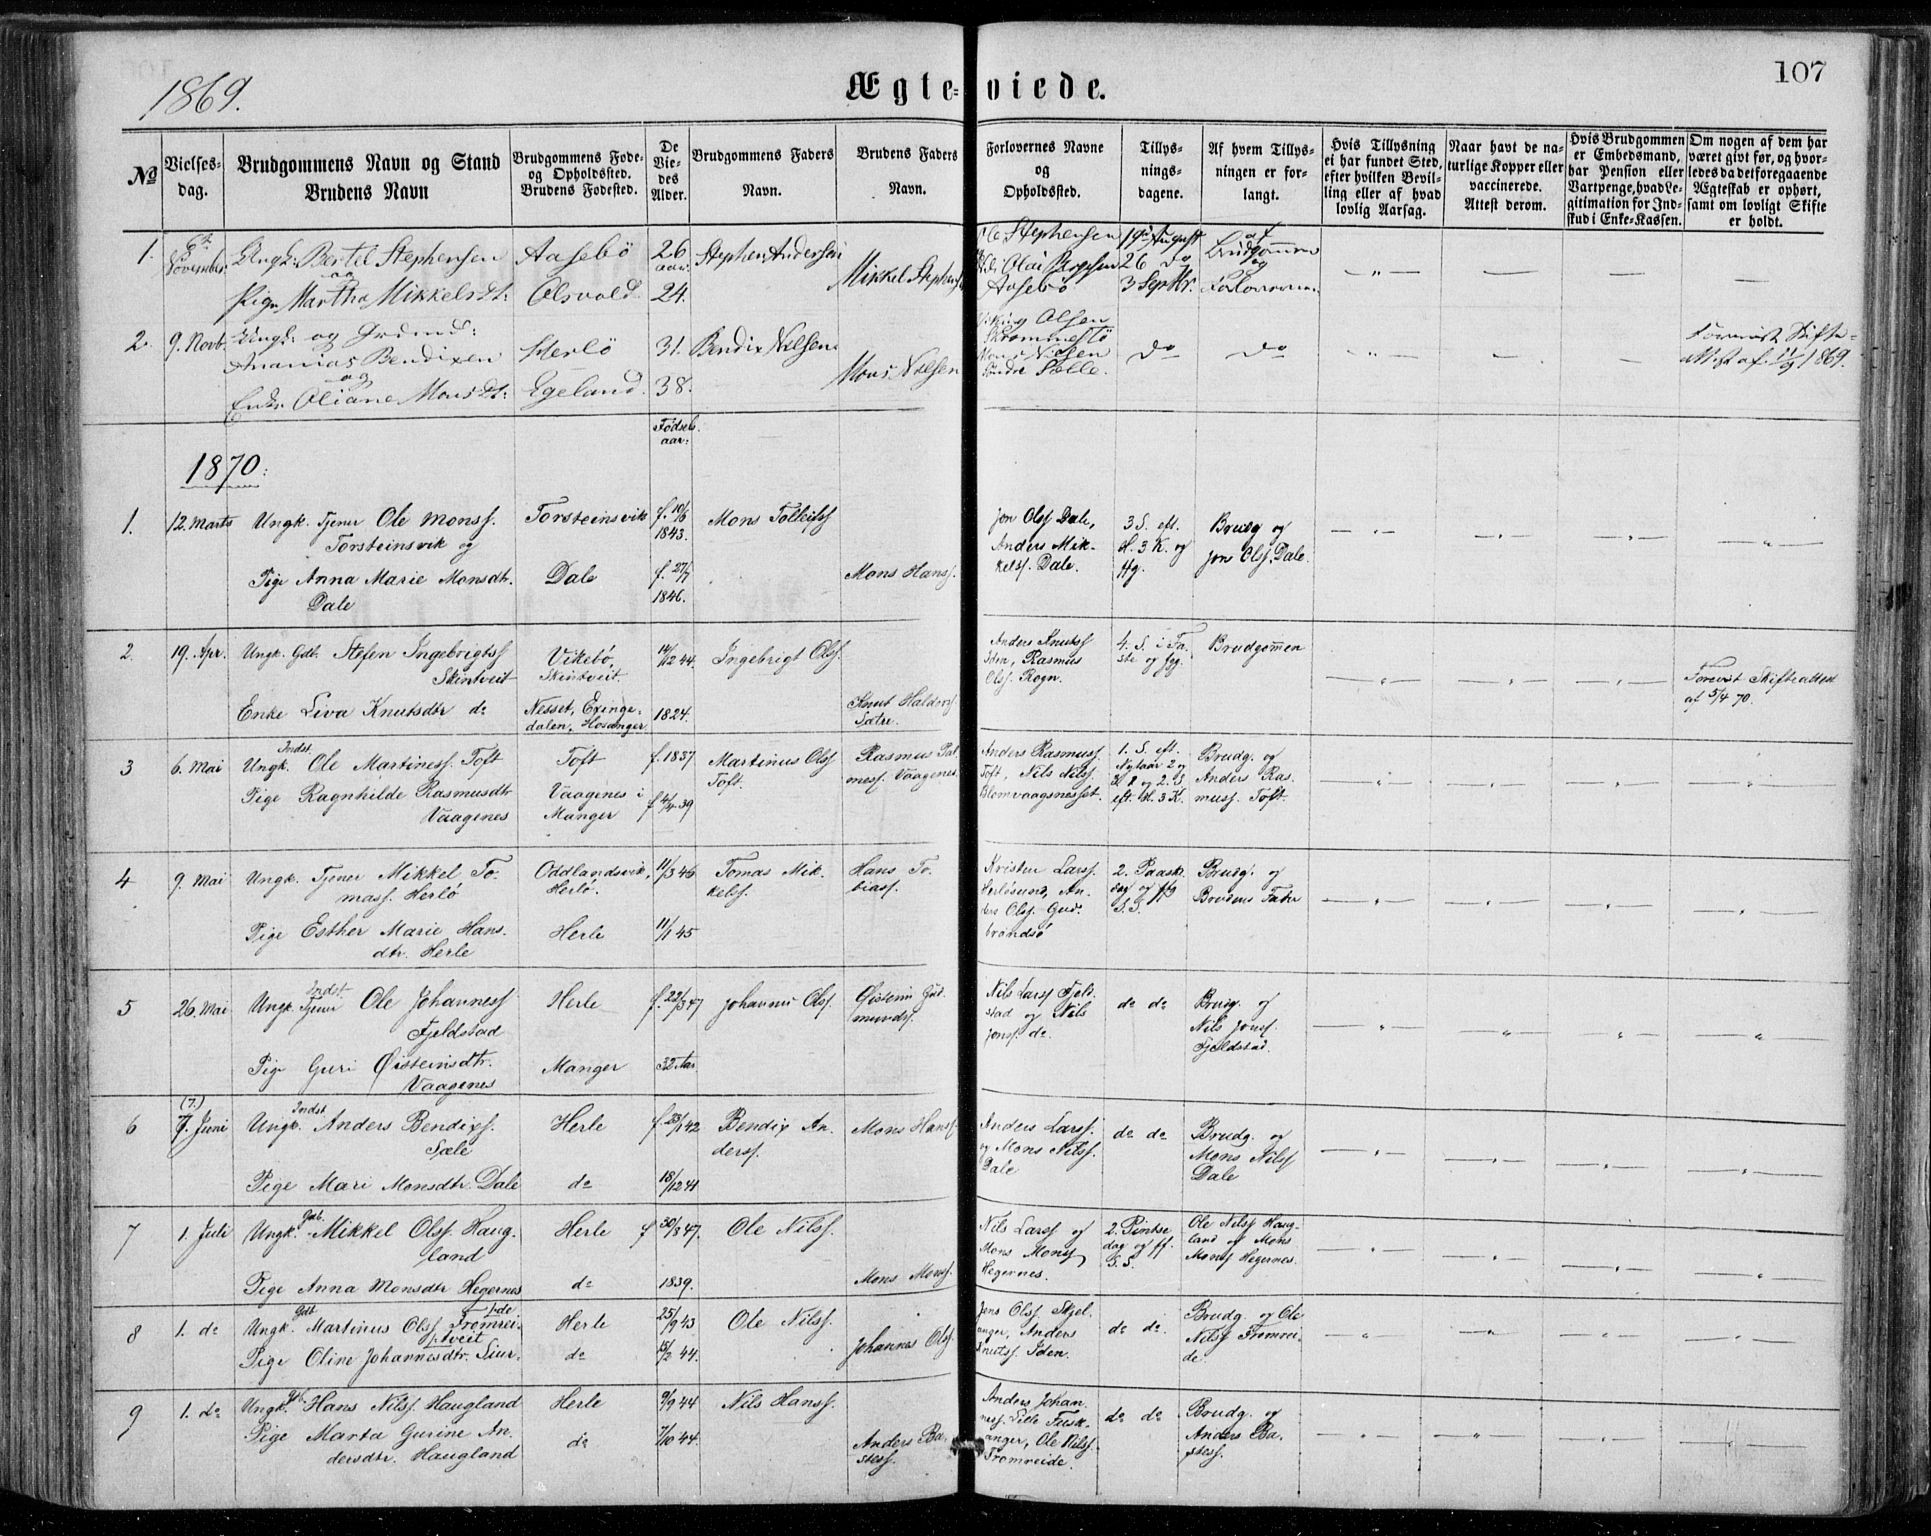 1869.
Ægteviede.
107
No
Vielses-
dag.
Brudgommens Navn og Stand
Brudens Navn
Brudgommens Føde-
og Opholdssted.
Brudens Fødested.
De
Vie-
des
Alder.
Brudgommens Faders
Navn.
Brudens Faders
Navn.
Forlovernes Navne
og
Opholdssted.
Tillys-
nings-
dagene.
Af hvem Tillys-
ningen er for-
langt.
Hvis Tillysning
ei har fundet Sted,
efter hvilken Bevil-
ling eller af hvad
lovlig Aarsag.
Naar havt de na-
turlige Kopper eller
vaccinerede.
Attest derom.
Hvis Brudgommen
er Embedsmand,
har Pension eller
Vartpenge, hvad Le-
gitimation for Ind-
skud i Enke-Kassen.
Om nogen af dem har
været givt før, og hvor-
ledes da det foregaaende
Ægteskab er ophørt,
samt om lovligt Skifte
er holdt.
1.
November
Ungk. Bertel Stephensen
og
Pige Martha Mikkelsdt:
Aasebø
Olsvold
26
aar
24.
Stephen Andersen
Mikkel Stephens
Ole Stephensen
Aasebø
19de August
26 do
3 Septbr.
af
Brudgommen
og
Forloverne
2.
9. Novb.
Ungk. og
Ananias Bendixen
og
Enke Oliane Monsdt:
Herlø
Egeland
31.
38.
Bendix Nilsen
Mons Nilsen
Olsen
Nilsen
Do
Do
Forevist Skifte-
attest af 11/9 1869.
Fødsels
aar:
1870:
1.
12. Marts
Ungk. Tjener Ole Monss.
Torsteinsvik og
Pige Anna Marie Monsdtr.
Dale
Torsteinsvik
Dale
f. 10/6
1843.
f. 27/7
1846.
Mons Tolleifss
Mons Hanss.
Jon Olss Dale,
Anders Mik-
kelss. Dale.
3 S. eft.
H. 3 K. og
ffg.
Brudg og
Jon Olss. Dale.
2
19. Apr.
Ungk. Gdb. Stefen Ingebrigtss
Skintveit
Enke Liva Knutsdtr do
Vikebø,
Skintveit.
Nesset, Exinge-
dalen, Hosanger
14/12 44.
1824.
Ingebrigt Olss.
Knut Haldors.
Sætre.
Anders Knutss
Iden, Rasmus
Olss. Rogn.
4. S. i Fa-
ste og ffg.
Brudgommen
Forevist Skifteattest
af 5/4 70.
3
6. Mai
Indst.
Ungk. Ole Martiness. Toft
Pige Ragnhilde Rasmusdtr
Vaagenes
Toft
Vaagenes i
Manger
f. 1837
f 4/4 39
Martinus Olss
Toft.
Rasmus Pal-
mess. Vaagenes.
Anders Rasmuss.
Toft, Nils Nilss.
Blomvaagsnesset.
1. S. eft.
Nytaar 2 og
eft. H. 3 K.
Brudg. og
Anders Ras-
muss. Toft.
4
9. Mai
Ungk. Tjener Mikkel To-
mass. Herlø
Pige Esther Marie Hans-
dtr. Herle
Oddlandsvik,
Herlø.
Herle
11/3 46
11/1 45
Tomas Mik-
kelss.
Hans To-
biass.
Kristen Larss.
Herløsund, An-
ders Olss. Gud-
brandsø
2. Paaske-
dag og ff
S. S.
Brudg. og
Brudens Fader
5
26. Mai
Indst.
Ungk. Tjener Ole Johanness
Fjeldstad
Pige Guri Øisteinsdtr.
Vaagenes
Herle
Manger
f. 22/3 47
32 Aar
Johannes Olss.
Øistein Gud-
mundss.
Nils Larss Fjeld-
stad og Nils
Jonss. do
do do
Brudg. og
Nils Jonss.
Fjeldstad.
6
(7.)
7. Juni
Indst.
Ungk. Anders Bendixs.
Sæle
Pige Mari Monsdtr. Dale
Herle
do
f. 23/1 42
18/12 41
Bendix An-
derss.
Mons Hanss.
Anders Larss.
og Mons Nilss.
Dale
do do
Brudg. og
Mons Nilss
Dale
7
1. Juli
Gdb.
Ungk. Mikkel Olss. Haug-
land
Pige Anna Monsdtr Hegernes
Herle
do
f 30/8 47.
1839.
Ole Nilss.
Mons Monss.
Nils Larss og
Mons Monss
Hegernes.
2. Pintse-
dag og ff.
S. S.
Ole Nilss Haug-
land og Mons
Monss Hegernes.
8
1. do
Gdb.
Ungk. Martinus Olss Fromrei-
de
Pige Oline Johannesdtr. Siur-
tveit
Herle
do
25/9 43
15/2 44.
Ole Nilss.
Johannes Olss.
Jens Olss. Skjel-
anger, Anders
Knutss. Iden.
do do.
Brudg. og Ole
Nilss Fromrei-
de.
9
1. do
Gdb.
Ungk. Hans Nilss. Haugland
Pige Marta Gurine An-
dersdtr. Haugland
Herle
do
9/9 44
7/10 44.
Nils Hanss.
Anders Ba-
stess.
Anders Johan-
ness. Lille Fusk-
anger, Ole Nilss.
Fromreide.
do do
Brudg. og
Anders Ba-
stess.